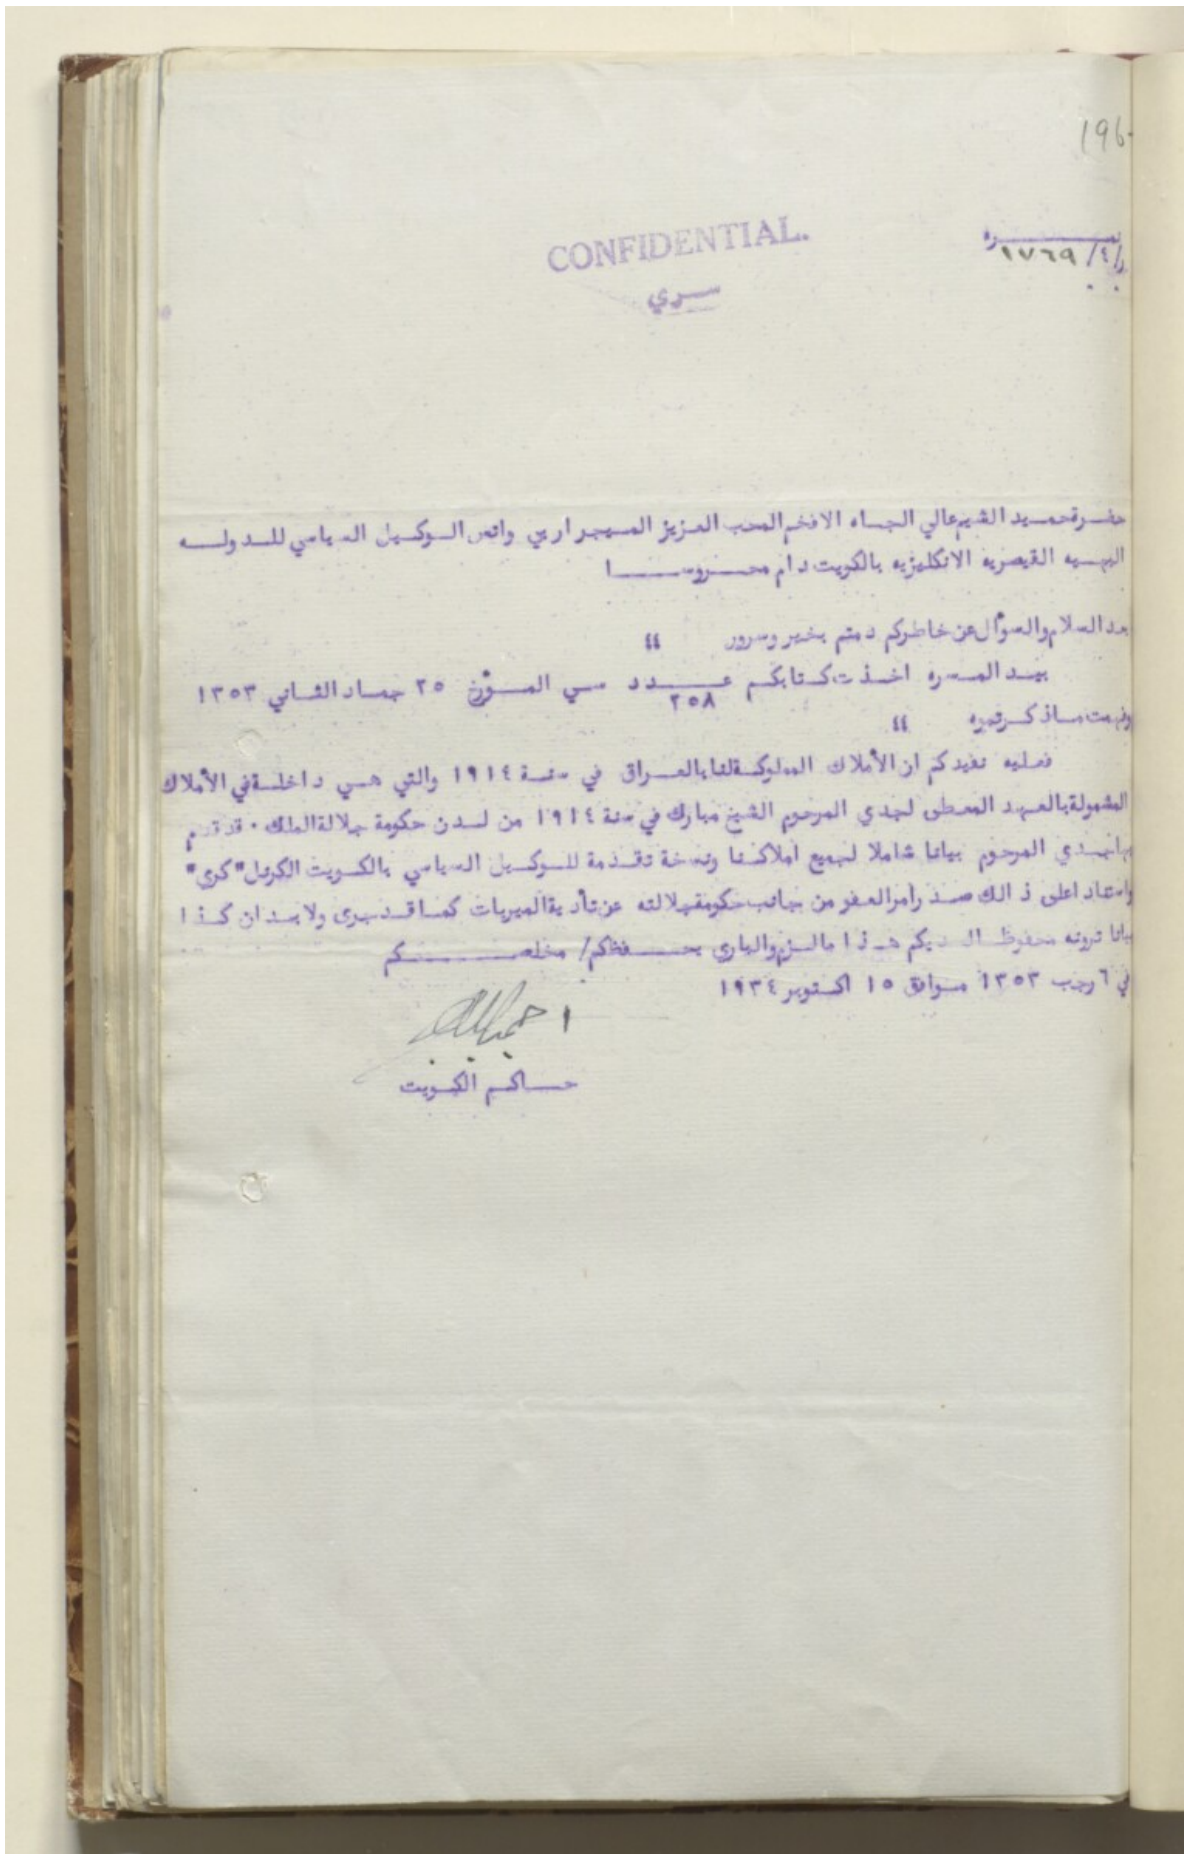 196
CONFIDENTIAL.
نمـــــره
ر/٤/١٧٦٩
سـري
حضـرة حميـد الشيم عالي الجـاه الافخم المحب العـزيز الميـجر اربي واتس الـوكـيل السياسي للـدولـه
البهـيه القيصريه الانكليزيه بالكويت دام محــروســـا
بعد السلام والسؤال عن خاطركم دمتم بخير وسرور "
بيـد المـسره اخـذت كـتابكـم عـــدد سـي المـؤرخ ٢٥ جمـاد الثـاني ١٣٥٣
٢٥٨
وفهمت مـاذكـرتموه "
فعليه نفيدكم ان الأملاك المملوكـة لنا بالعـراق في سنـة ١٩١٤ والتي هـي داخلـة في الأملاك
المشمولة بالعهد المعطى لجدي المرحوم الشيخ مبارك في سنة ١٩١٤ من لـدن حكومة جلالة الملك . قد قدم
بها جـدي المرحوم بيانا شاملا لجميع املاكـنا ونسخة تقـدمة للـوكـيل السياسي بالكـويت الكرنل "كري"
واستناد اعلى ذالك صـدر أمر العفو من جانب حكومة جلالته عن تأدية الميريات كمـا قـد جرى ولابـد ان كـذا
بيانا ترونه محفوظـا لـديكم هـذا مالـزم والباري يحـــفظكم/ مخلصــــكم
في ٦ رجب ١٣٥٣ مـوافق ١٥ اكـتوبر ١٩٣٤
حــاكـم الكـويت